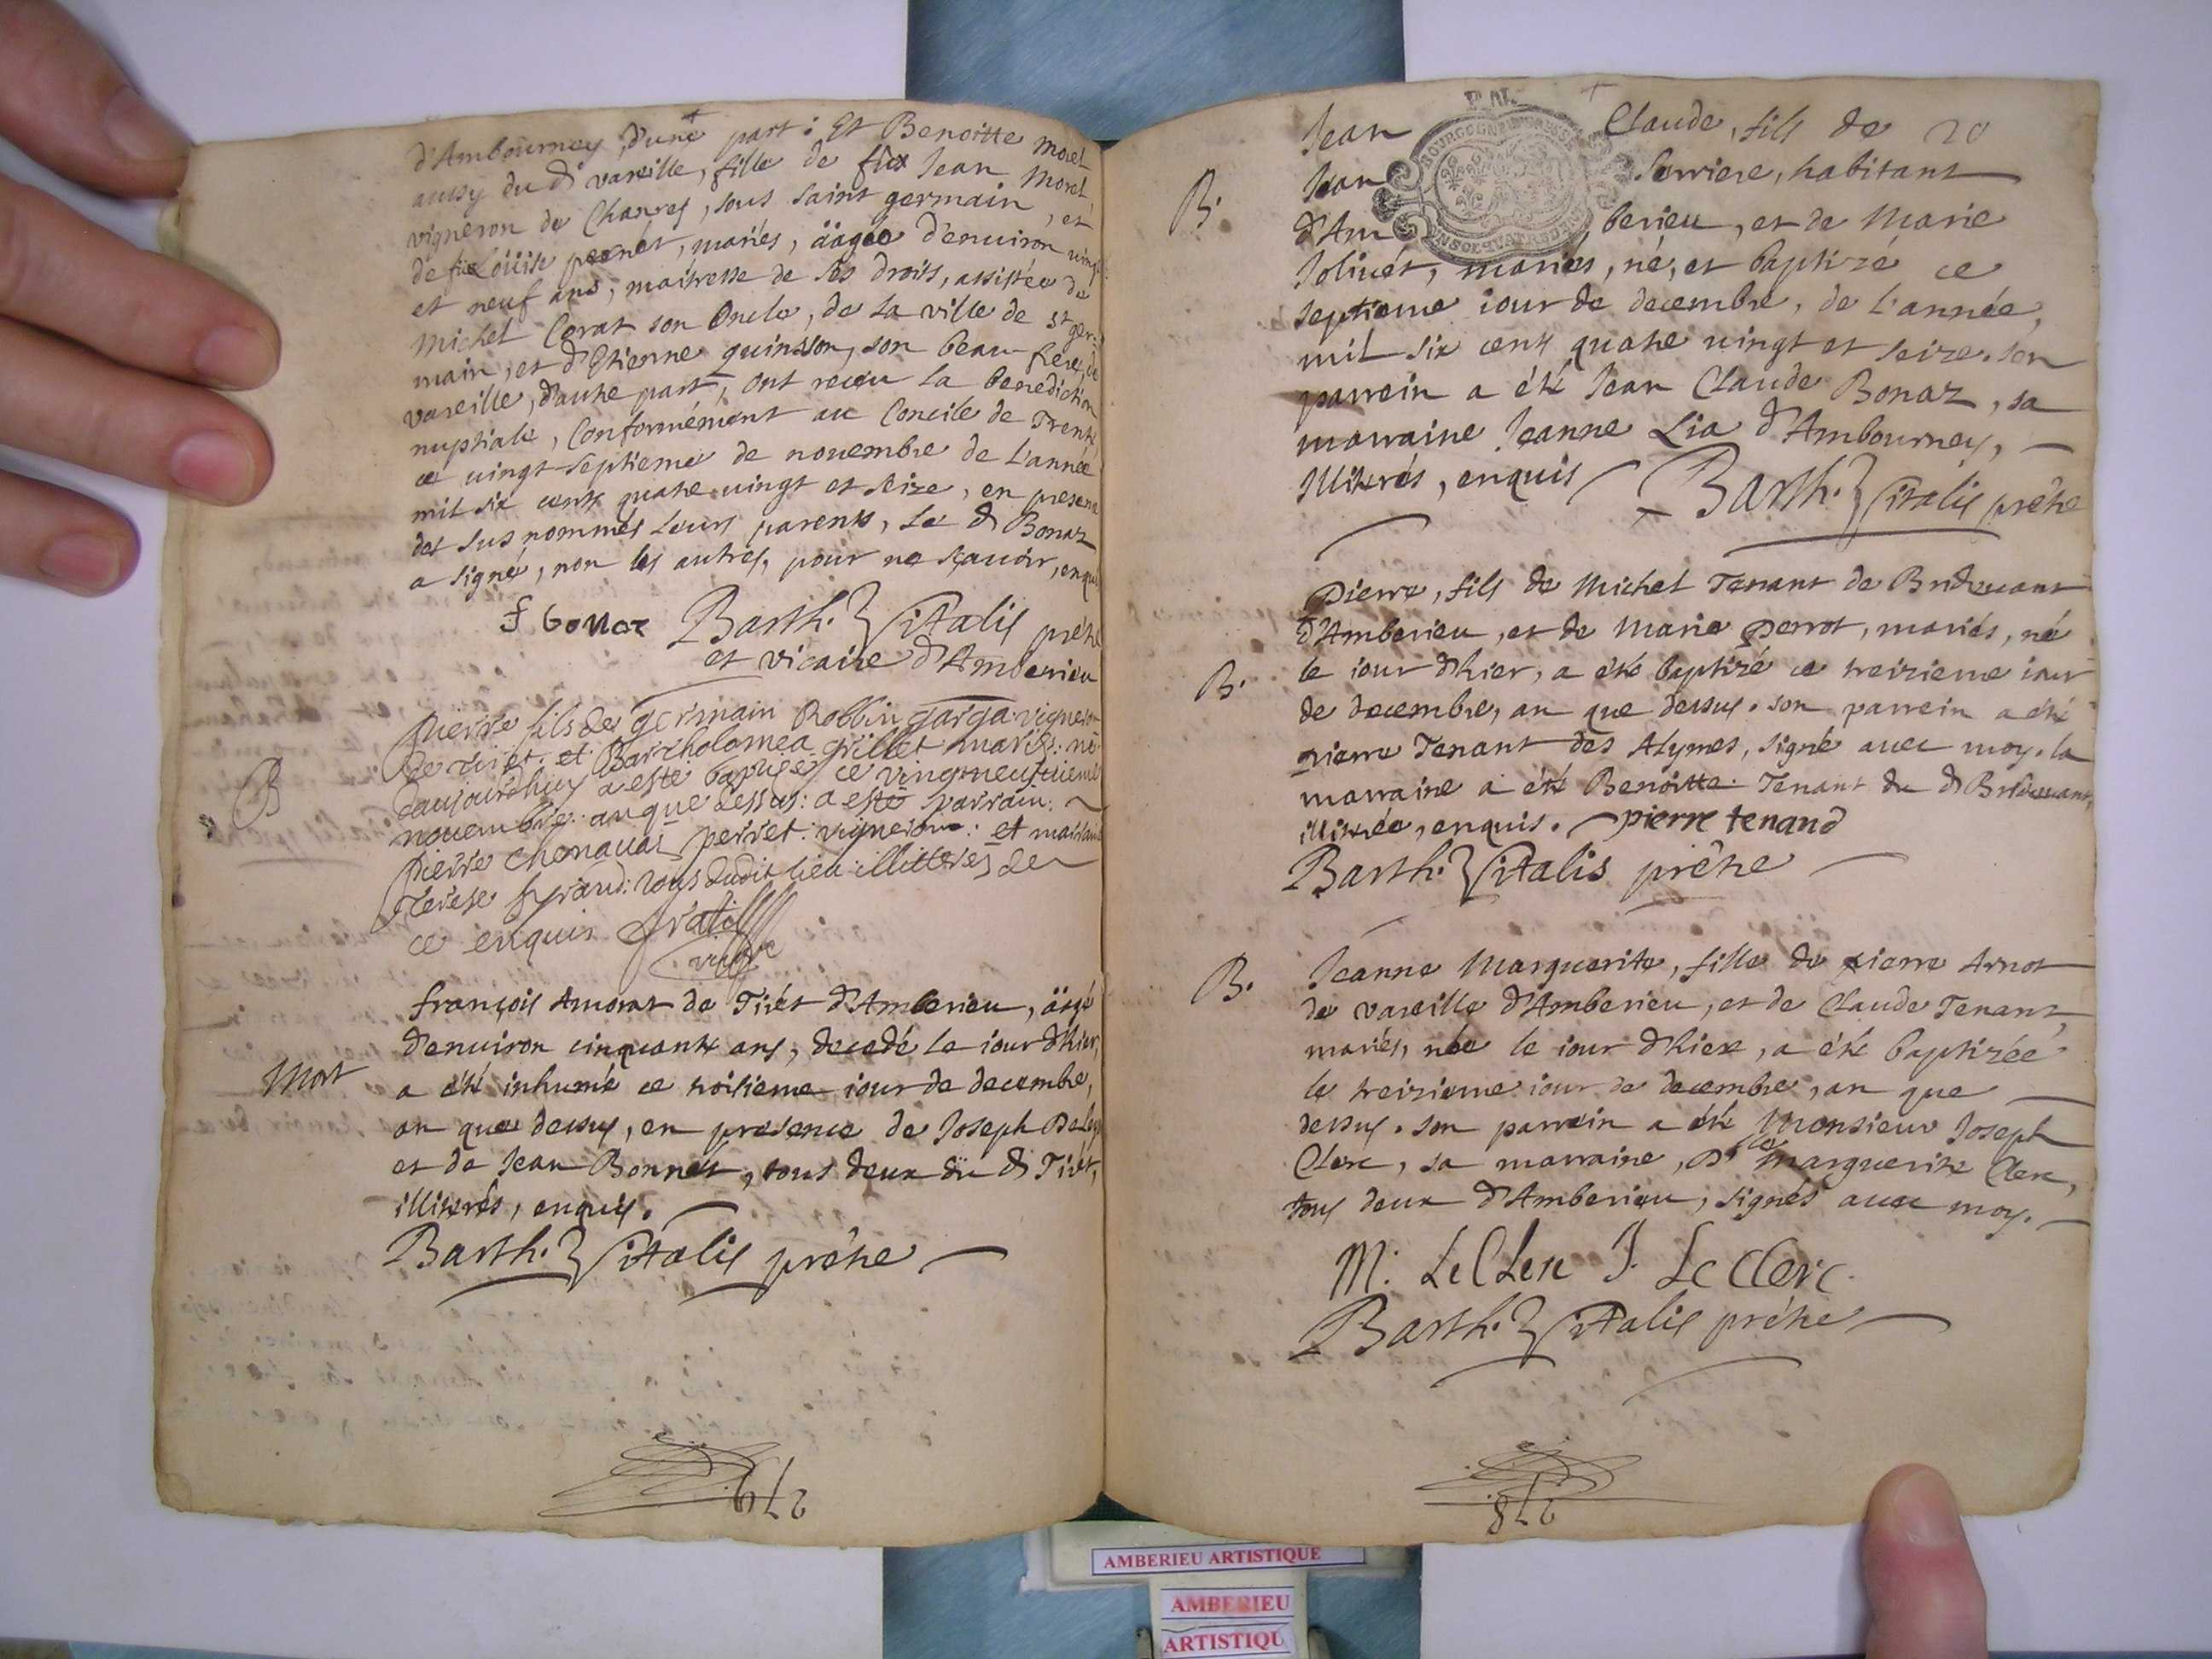 d'Ambournay, d'une part: Et Benoitte Morel
aussy du d vareille, fille de feu Jean Morel
vigneron de Charrés, sous saint germain, et
de feüe Loüise pernet, mariés, äagée d'environ vingt
et neuf ans, maitresse de ses droits, assistée de
Michel Corat son Oncle, de la ville de St ger-
main, et d'Etienne quinsson, son beau-frere, de
vareille, d'autre part, ont receu la benediction
nuptiale, Conformément au Concile de Trente
ce vingt-septieme de novembre de L'année
mil six cents quatre vingt et seize, en presence
des sus nommés Leurs parents, Le d Bonaz
a signé, non les autres, pour ne sçavoir, enquis
f bonaz Barth. Vitalis prêtre
et vicaire d'Amberieu
B
pierre fils de germain Robbin garga vigneron
de tiret. et Bartholomea grillet mariés: né
daujourdhuy a esté baptisé ce vingtneufuieme
novembre. an que dessus: a esté parrain:
pierre chenavas perret: vigneron: et marraine
Terese: tous dudit lieu illitteres de
ce enquis
Mort
françois Amorat de Tirét d'Amberieu, äagé
d'environ cinquante ans, decedé le iour d'hier,
a été inhumé ce troisieme iour de decembre,
an que dessus, en presence de Joseph
et de Jean Bonnet, tous deux du d Tirét,
illiterés, enquis.
Barth. Vitalis prêtre
279
20
BOURGOGNE
B.
Jean Claude, fils de
Jean Serriere, habitant
d'Amberieu, et de Marie
Jolivét, mariés, né, et baptizé ce
septieme iour de decembre, de l'année,
mil six cents quatre vingt et seize. son
parrein a été Jean Claude Bonaz, sa
marraine Jeanne Lia d'Ambournay,
illiterés, enquis Barth. Vitalis prêtre
B.
Pierre, fils de Michel Tenant de Bredevant
d'Amberieu, et de Marie perrot, mariés, né
le iour d'hier, a été baptizé ce treizieme iour
de decembre, an que dessus. son parrein a été
pierre Tenant des Alymes, signé avec moy. la
marraine a été Benoitte Tenant du d Bredevant,
illiterée, enquis. pierre tenand
Barth. Vitalis prêtre
B.
Jeanne Marguerite, fille de pierre Arnot
de vareille d'Amberieu, et de Claude Tenant,
mariés, née le iour d'hier, a été baptizée
le treizieme iour de decembre, an que
dessus. son parrein a été Monsieur Joseph
Clerc, sa marraine, Dlle Marguerite Clerc,
tous deux d'Amberieu, signés avec moy.
M. LeClerc J. LeClerc.
Barth. Vitalis prêtre
278
AMBERIEU ARTISTIQUE
AMBERIEU
ARTISTIQU